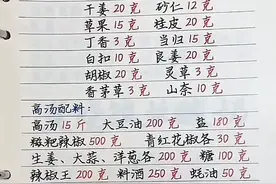 干姜 20 克 砂仁 12 克
草果 15 克 桂皮 20 克
丁香 3 克 当归 15 克
白扣 10 克 良姜 20 克
胡椒 20 克 灵草 3 克
香茅草 3 克 山奈 10 克
高汤配料:
高汤 15 斤 大豆油 200 克 盐 180 克
糍粑辣椒 500 克 青红花椒各 30 克
生姜、大蒜、洋葱各 200 克 糖 100 克
辣椒王 200 克 料酒 250 克 蚝油 50 克